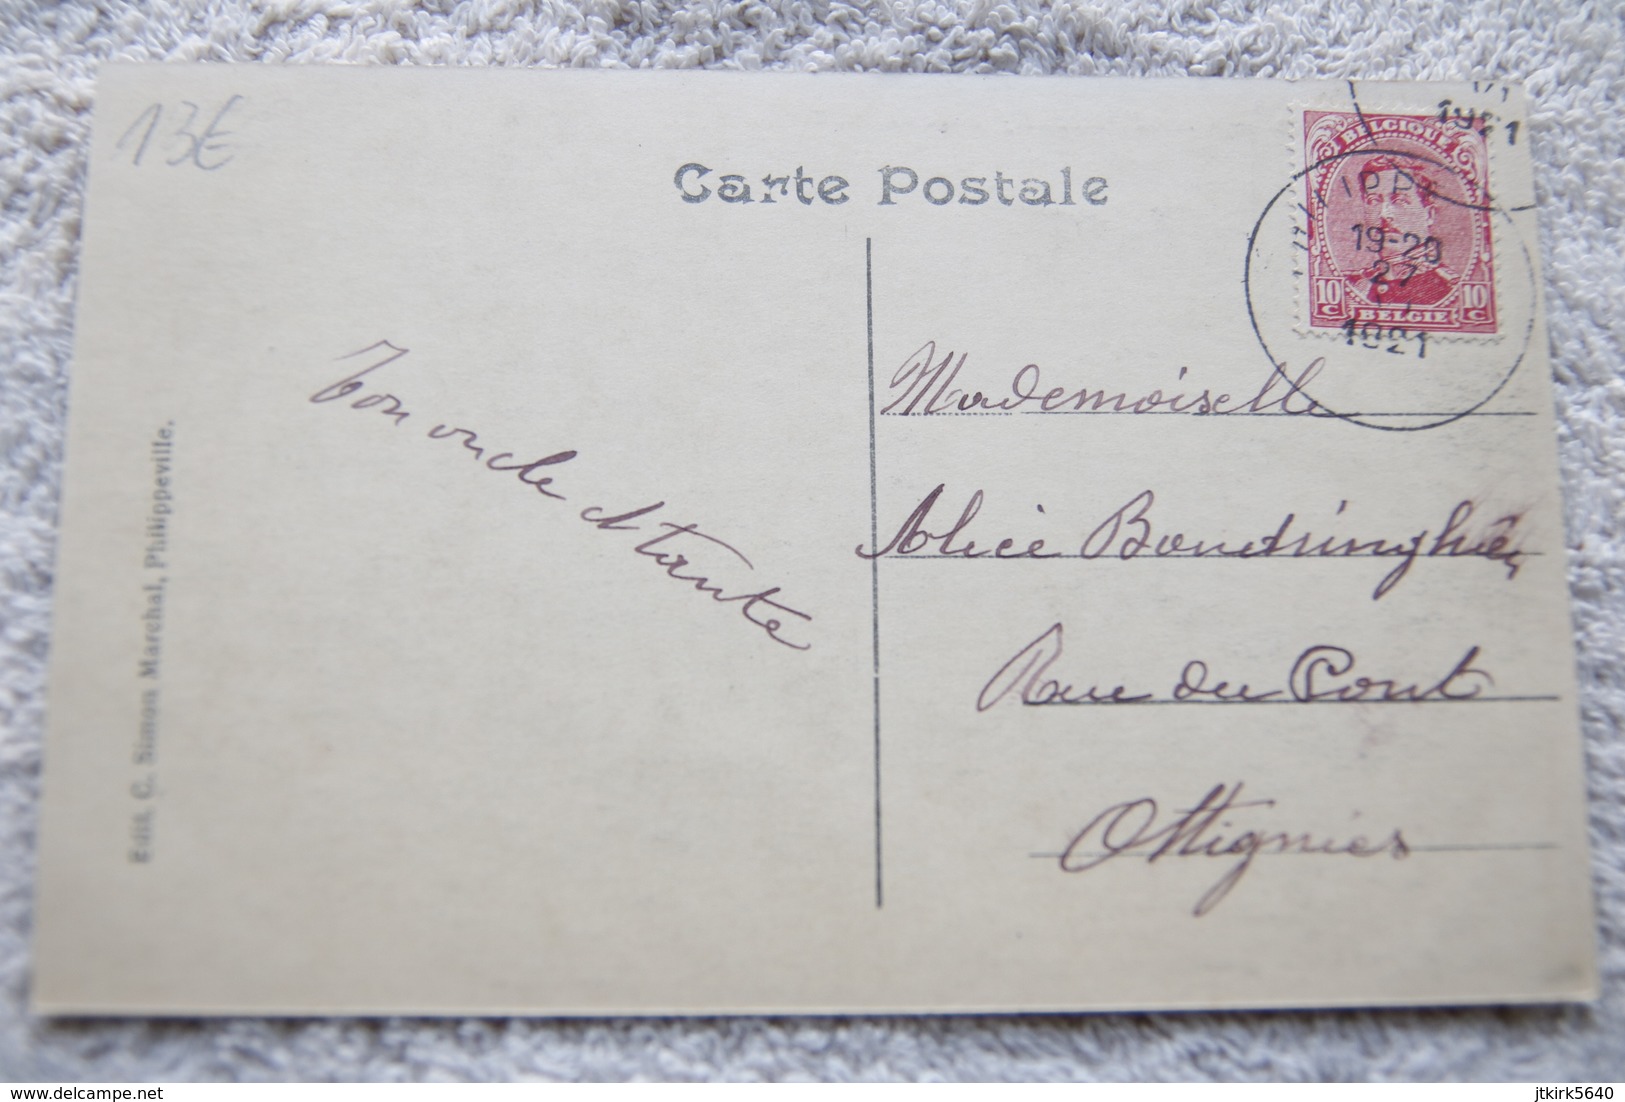 13€
Carte Postale
1921
BELGIQUE
IPPE
19-20
27
1921
10 C 10 C
BELGIE
Ton oncle et tante
Mademoiselle
Alice
Rue du Pont
Ottignies
Edit. C. Simon Marchal, Philippeville.
delcampe.net
jtkirk5640